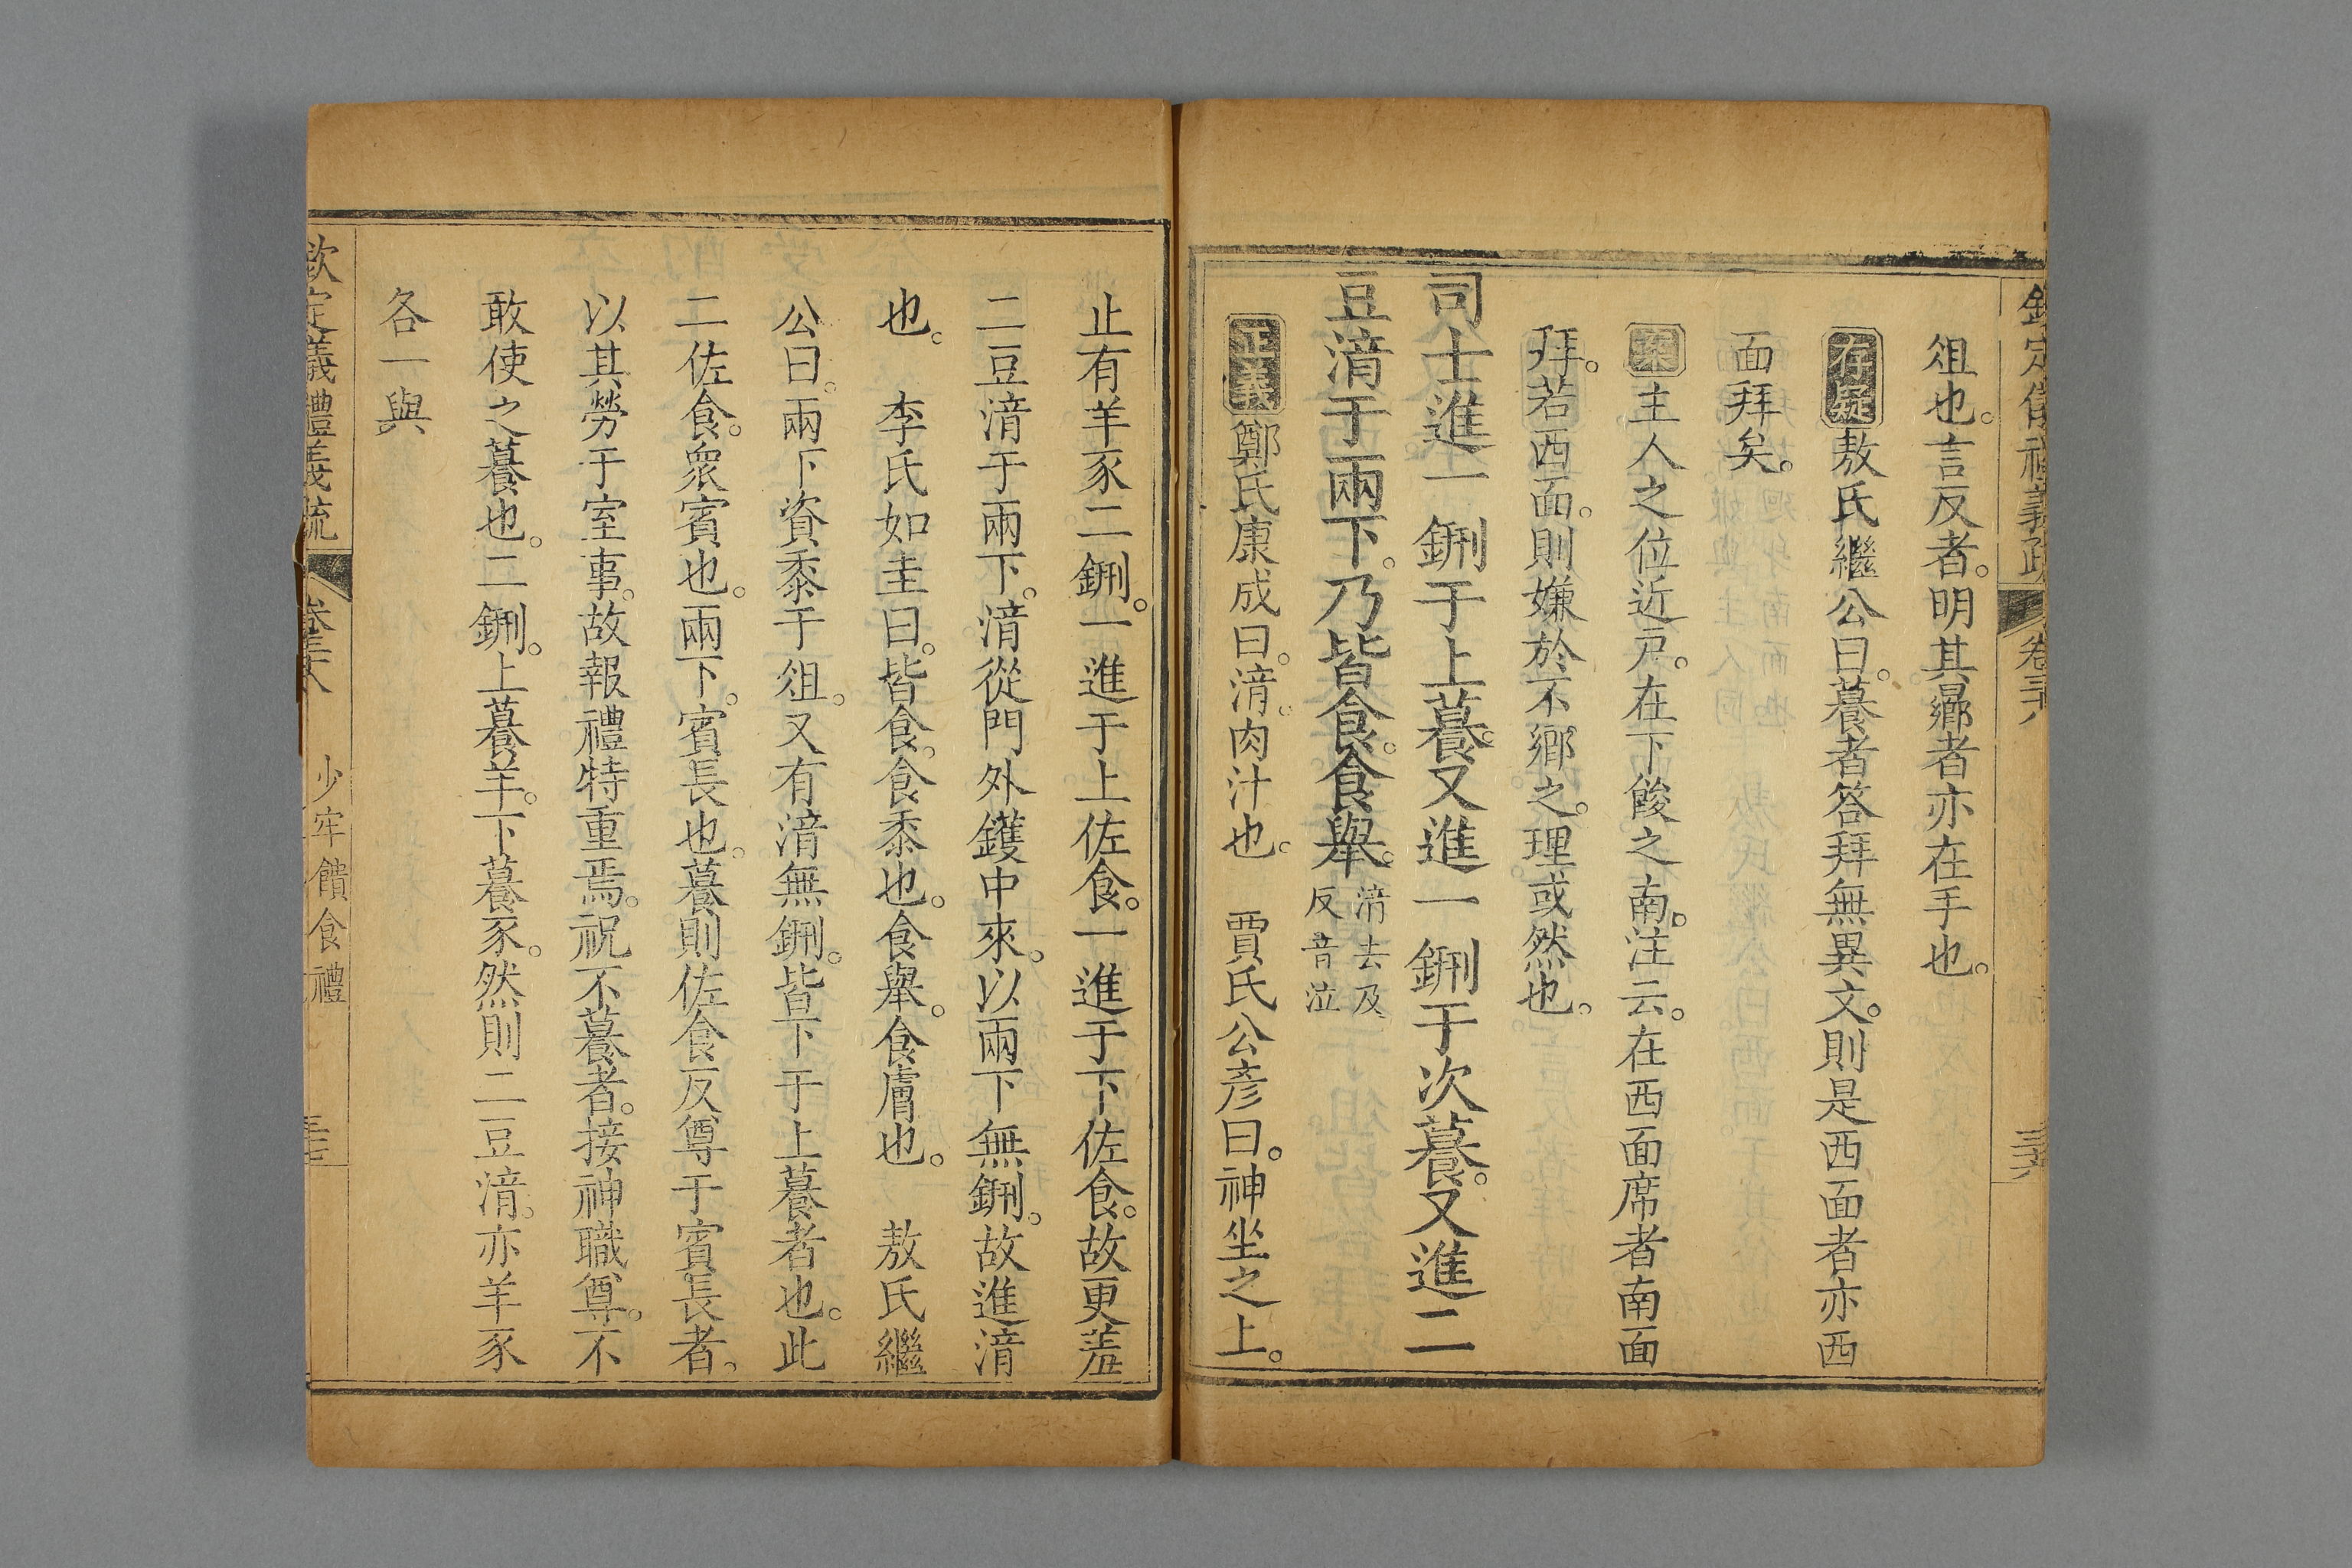 欽定儀禮義疏 卷三十八 三六
俎也。言反者。明其曏者亦在手也。
存疑 敖氏繼公曰。䬸者答拜無異文。則是西面者亦西
面拜矣。
案 主人之位近戶。在下餕之南。注云。在西面席者南面
拜。若西面。則嫌於不鄉之。理或然也。
司士進一鉶于上䬸。又進一鉶于次䬸。又進二
豆湆于兩下。乃皆食。食舉。湆去及反音泣
正義 鄭氏康成曰。湆。肉汁也。 賈氏公彥曰。神坐之上。
止有羊豕二鉶。一進于上佐食。一進于下佐食。故更羞
二豆湆于兩下。湆從門外鑊中來。以兩下無鉶。故進湆
也。 李氏如圭曰。皆食。食黍也。食舉。食膚也。 敖氏繼
公曰。兩下資黍于俎。又有湆無鉶。皆下于上䬸者也。此
二佐食。衆賓也。兩下。賓長也。䬸則佐食反尊于賓長者。
以其勞于室事。故報禮特重焉。祝不䬸者。接神職尊。不
敢使之䬸也。二鉶。上䬸羊。下䬸豕。然則二豆湆。亦羊豕
各一與
欽定儀禮義疏 卷三十八 少牢饋食禮